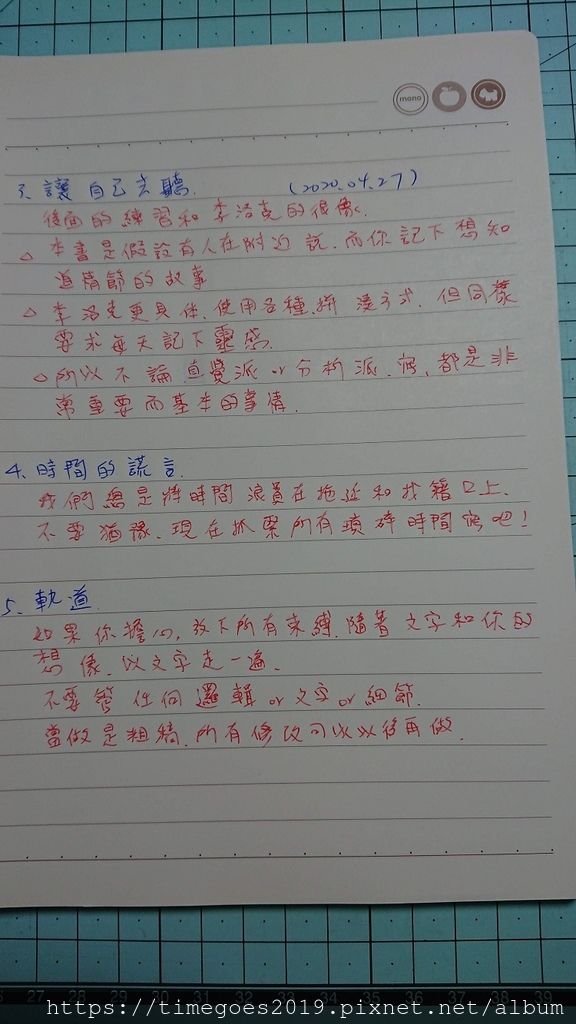 mono
3. 讓自己去聽. (2020.04.27)
後面的練習和李洛克的很像.
△ 本書是假設有人在附近說.而你記下想知
道情節的故事
△ 李洛克更具体.使用各種.拼湊方式.但同樣
要求每天記下靈感.
△ 所以不論直覺派 or 分析派.寫.都是非
常重要而基本的事情.
4. 時間的謊言.
我們總是將時間浪費在拖延和找籍口上.
不要猶豫.現在抓緊所有瑣碎時間寫吧!
5. 軌道
如果你擔心,放下所有束縛.隨著文字和你的
想像.以文字走一遍.
不要管任何邏輯 or 文字 or 細節.
當做是粗稿.所有修改可以以後再做.
27 28 29 30 31 32 33 34 35 36 37 38 39
https://timegoes2019.pixnet.net/album